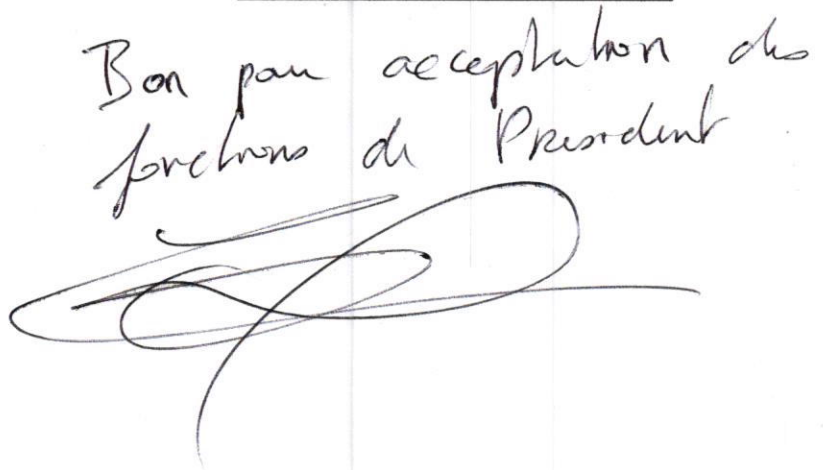 Bon pour acceptation des
fonctions de President